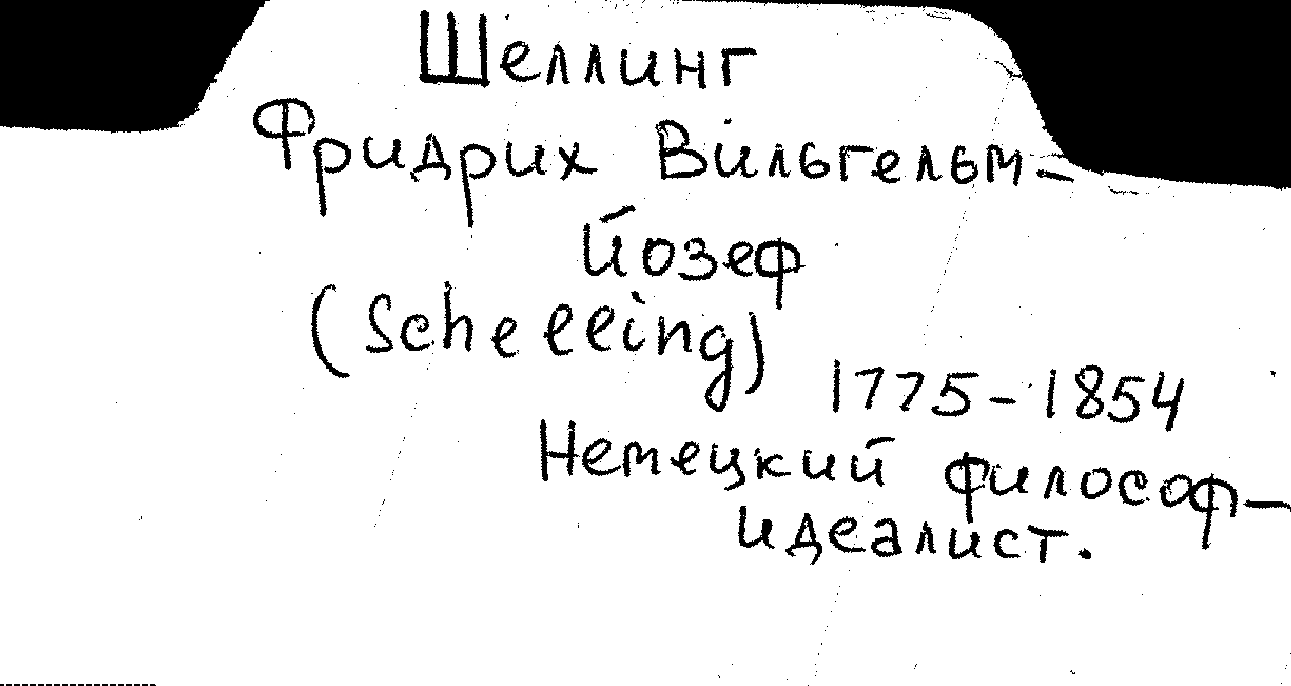 Шеллинг
Фридрих Вильгельм-
Йозеф
(Schelling)
1775-1854
Немецкий философ-
идеалист.